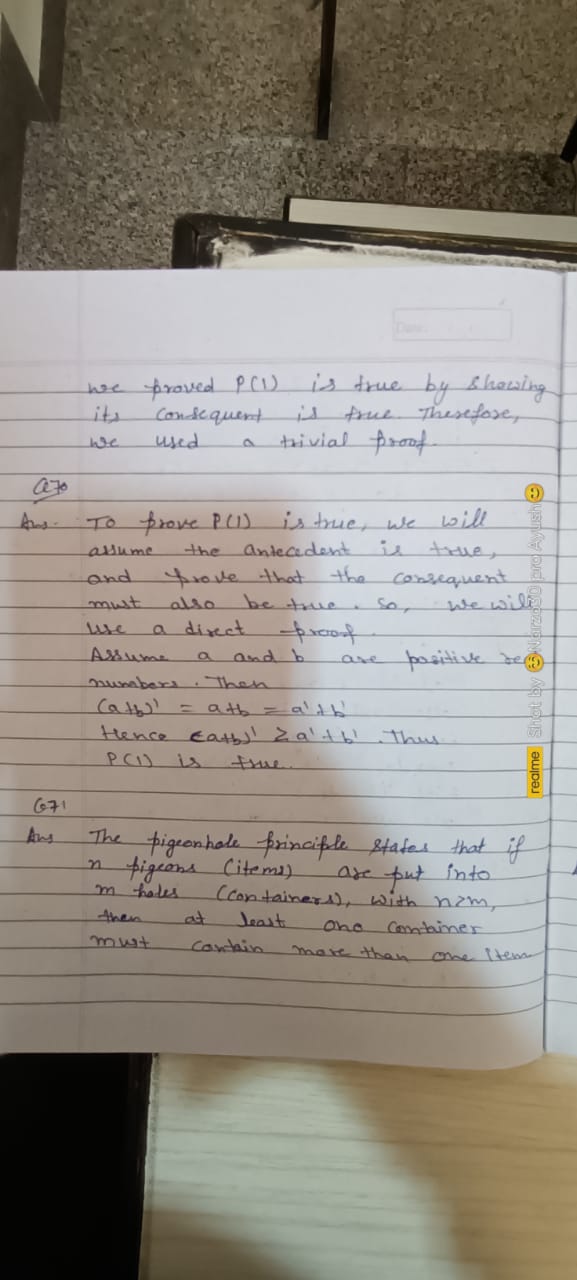 Date:
we proved P(1) is true by showing
its consequent is true. Therefore,
we used a trivial proof.
Q70
Ans. To prove P(1) is true, we will
assume the antecedent is true,
and prove that the consequent
must also be true. So, we will
use a direct proof.
Assume a and b are positive
numbers. Then
(a+b)¹ = a+b = a¹+b¹
Hence (a+b)¹ ≥ a¹+b¹. Thus
P(1) is true.
Q71
Ans The pigeonhole principle states that if
n pigeons (items) are put into
m holes (containers), with n>m,
then at least one container
must contain more than one item
realme Shot by Narzo30 pro Ayush